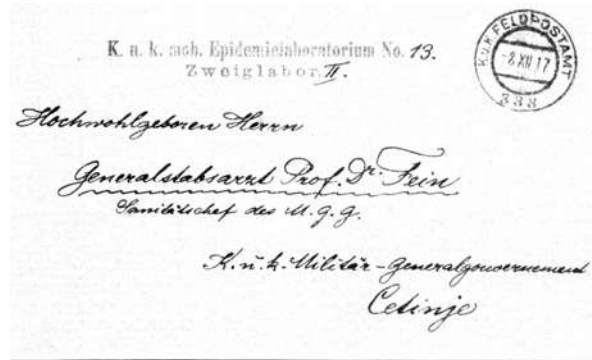 K. u. k. mob. Epidemielaboratorium No. 13.
Zweiglabor. II.
K.u.K. FELDPOSTAMT
-8 XII 17
338
Hochwohlgeboren Herrn
Generalstabsarzt Prof. Dr. Fein
Sanitätschef des M. G. G.
K. u. k. Militär-Generalgouvernement
Cetinje